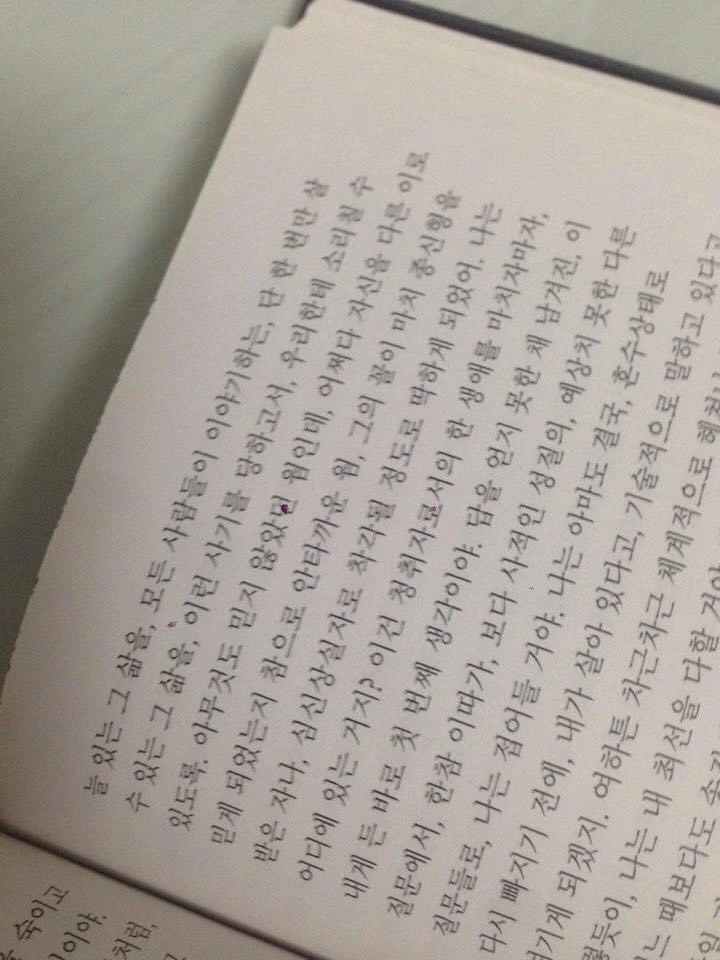 늘 있는 그 삶을, 모든 사람들이 이야기하는, 단 한 번만 살
수 있는 그 삶을, 이런 사기를 당하고서, 우리한테 소리칠 수
있도록. 아무것도 믿지 않았던 웜인데, 어쩌다 자신을 다른 이로
믿게 되었는지 참으로 안타까운 웜, 그의 꼴이 마치 종신형을
받은 자나, 심신상실자로 착각될 정도로 딱하게 되었어. 나는
어디에 있는 거지? 이건 청취자로서의 한 생애를 마치자마자,
내게 든 바로 첫 번째 생각이야. 답을 얻지 못한 채 남겨진, 이
질문에서, 한참 이따가, 보다 사적인 성질의, 예상치 못한 다른
질문들로, 나는 접어들 거야. 나는 아마도 결국, 혼수상태로
다시 빠지기 전에, 내가 살아 있다고, 기술적으로 말하고 있다고
여기게 되겠지. 여하튼 차근차근 체계적으로
렇듯이, 나는 내 최선을 다할 거야
는 때보다도
숙이고
이야.
처럼,